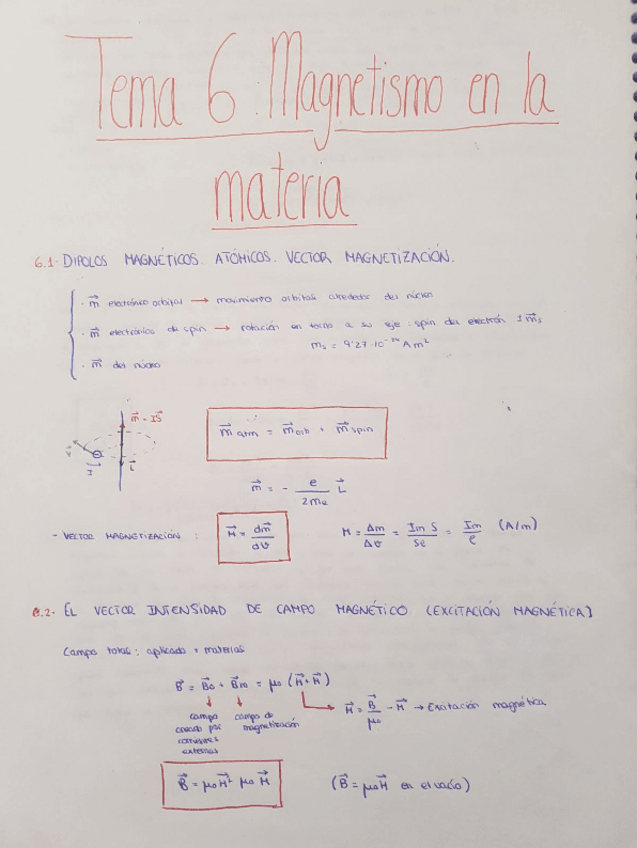 Tema 6: Magnetismo en la
materia
6.1- DIPOLOS MAGNÉTICOS ATÓMICOS. VECTOR MAGNETIZACIÓN.
· m⃗ electrónico orbital → movimiento orbital alrededor del núcleo
· m⃗ electrónico de spin → rotación en torno a su eje : spin del electrón
mₛ = 9'27·10⁻²⁴ A m²
· m⃗ del núcleo
m⃗ = IS⃗
v⃗
I
L⃗
m⃗ atm = m⃗ orb + m⃗ spin
m⃗ = - e/2me L⃗
- VECTOR MAGNETIZACIÓN : M⃗ = dm⃗/dv M = Δm/Δv = Im S/Sℓ = Im/ℓ (A/m)
6.2- EL VECTOR INTENSIDAD DE CAMPO MAGNÉTICO (EXCITACIÓN MAGNÉTICA)
Campo total : aplicado + material
B⃗ = B⃗o + B⃗m = μo (H⃗ + M⃗)
H⃗ = B⃗/μo - M⃗ → Excitación magnética
campo creado por corrientes externas
campo de magnetización
B⃗ = μo H⃗ + μo M⃗ (B⃗ = μo H⃗ en el vacío)